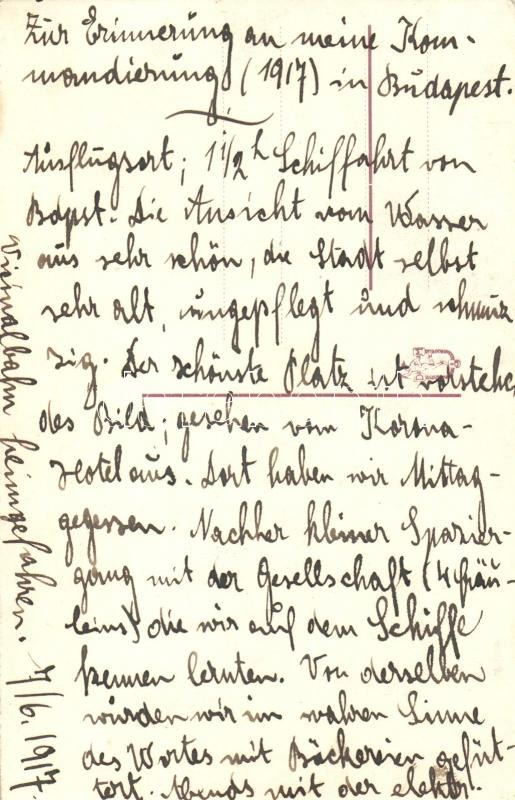 Zur Erinnerung an meine Kom-
mandierung (1917) in Budapest.
Ausflugsort; 1 1/2 h Schiffahrt von
Bdpst. Die Ansicht vom Wasser
aus sehr schön, die Stadt selbst
sehr alt, ungepflegt und schmut
zig. Der schönste Platz ist vorstehen
des Bild; gesehen vom Korona-
Hotel aus. Dort haben wir Mittag-
gegessen. Nachher kleiner Spazier-
gang mit der Gesellschaft (4 Fräu-
leins) die wir auf dem Schiffe
kennen lernten. Von derselben
wurden wir im wahren Sinne
des Wortes mit Bäckereien gefüt-
tert. Abends mit der elektr.
Vicinalbahn heimgefahren. 7/6. 1917.